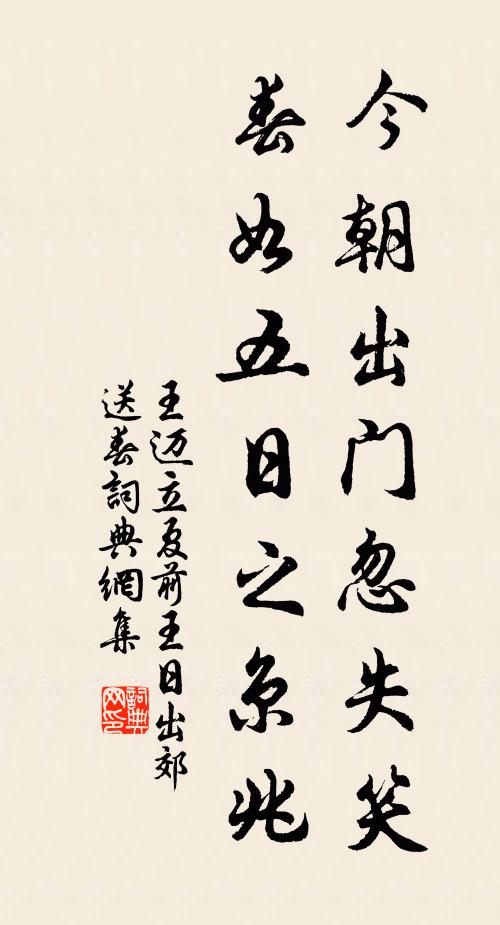 今朝出门忽失笑
春如五日之京兆
王迈立夏前王日出郊
送春詞典網集
詞典
网印